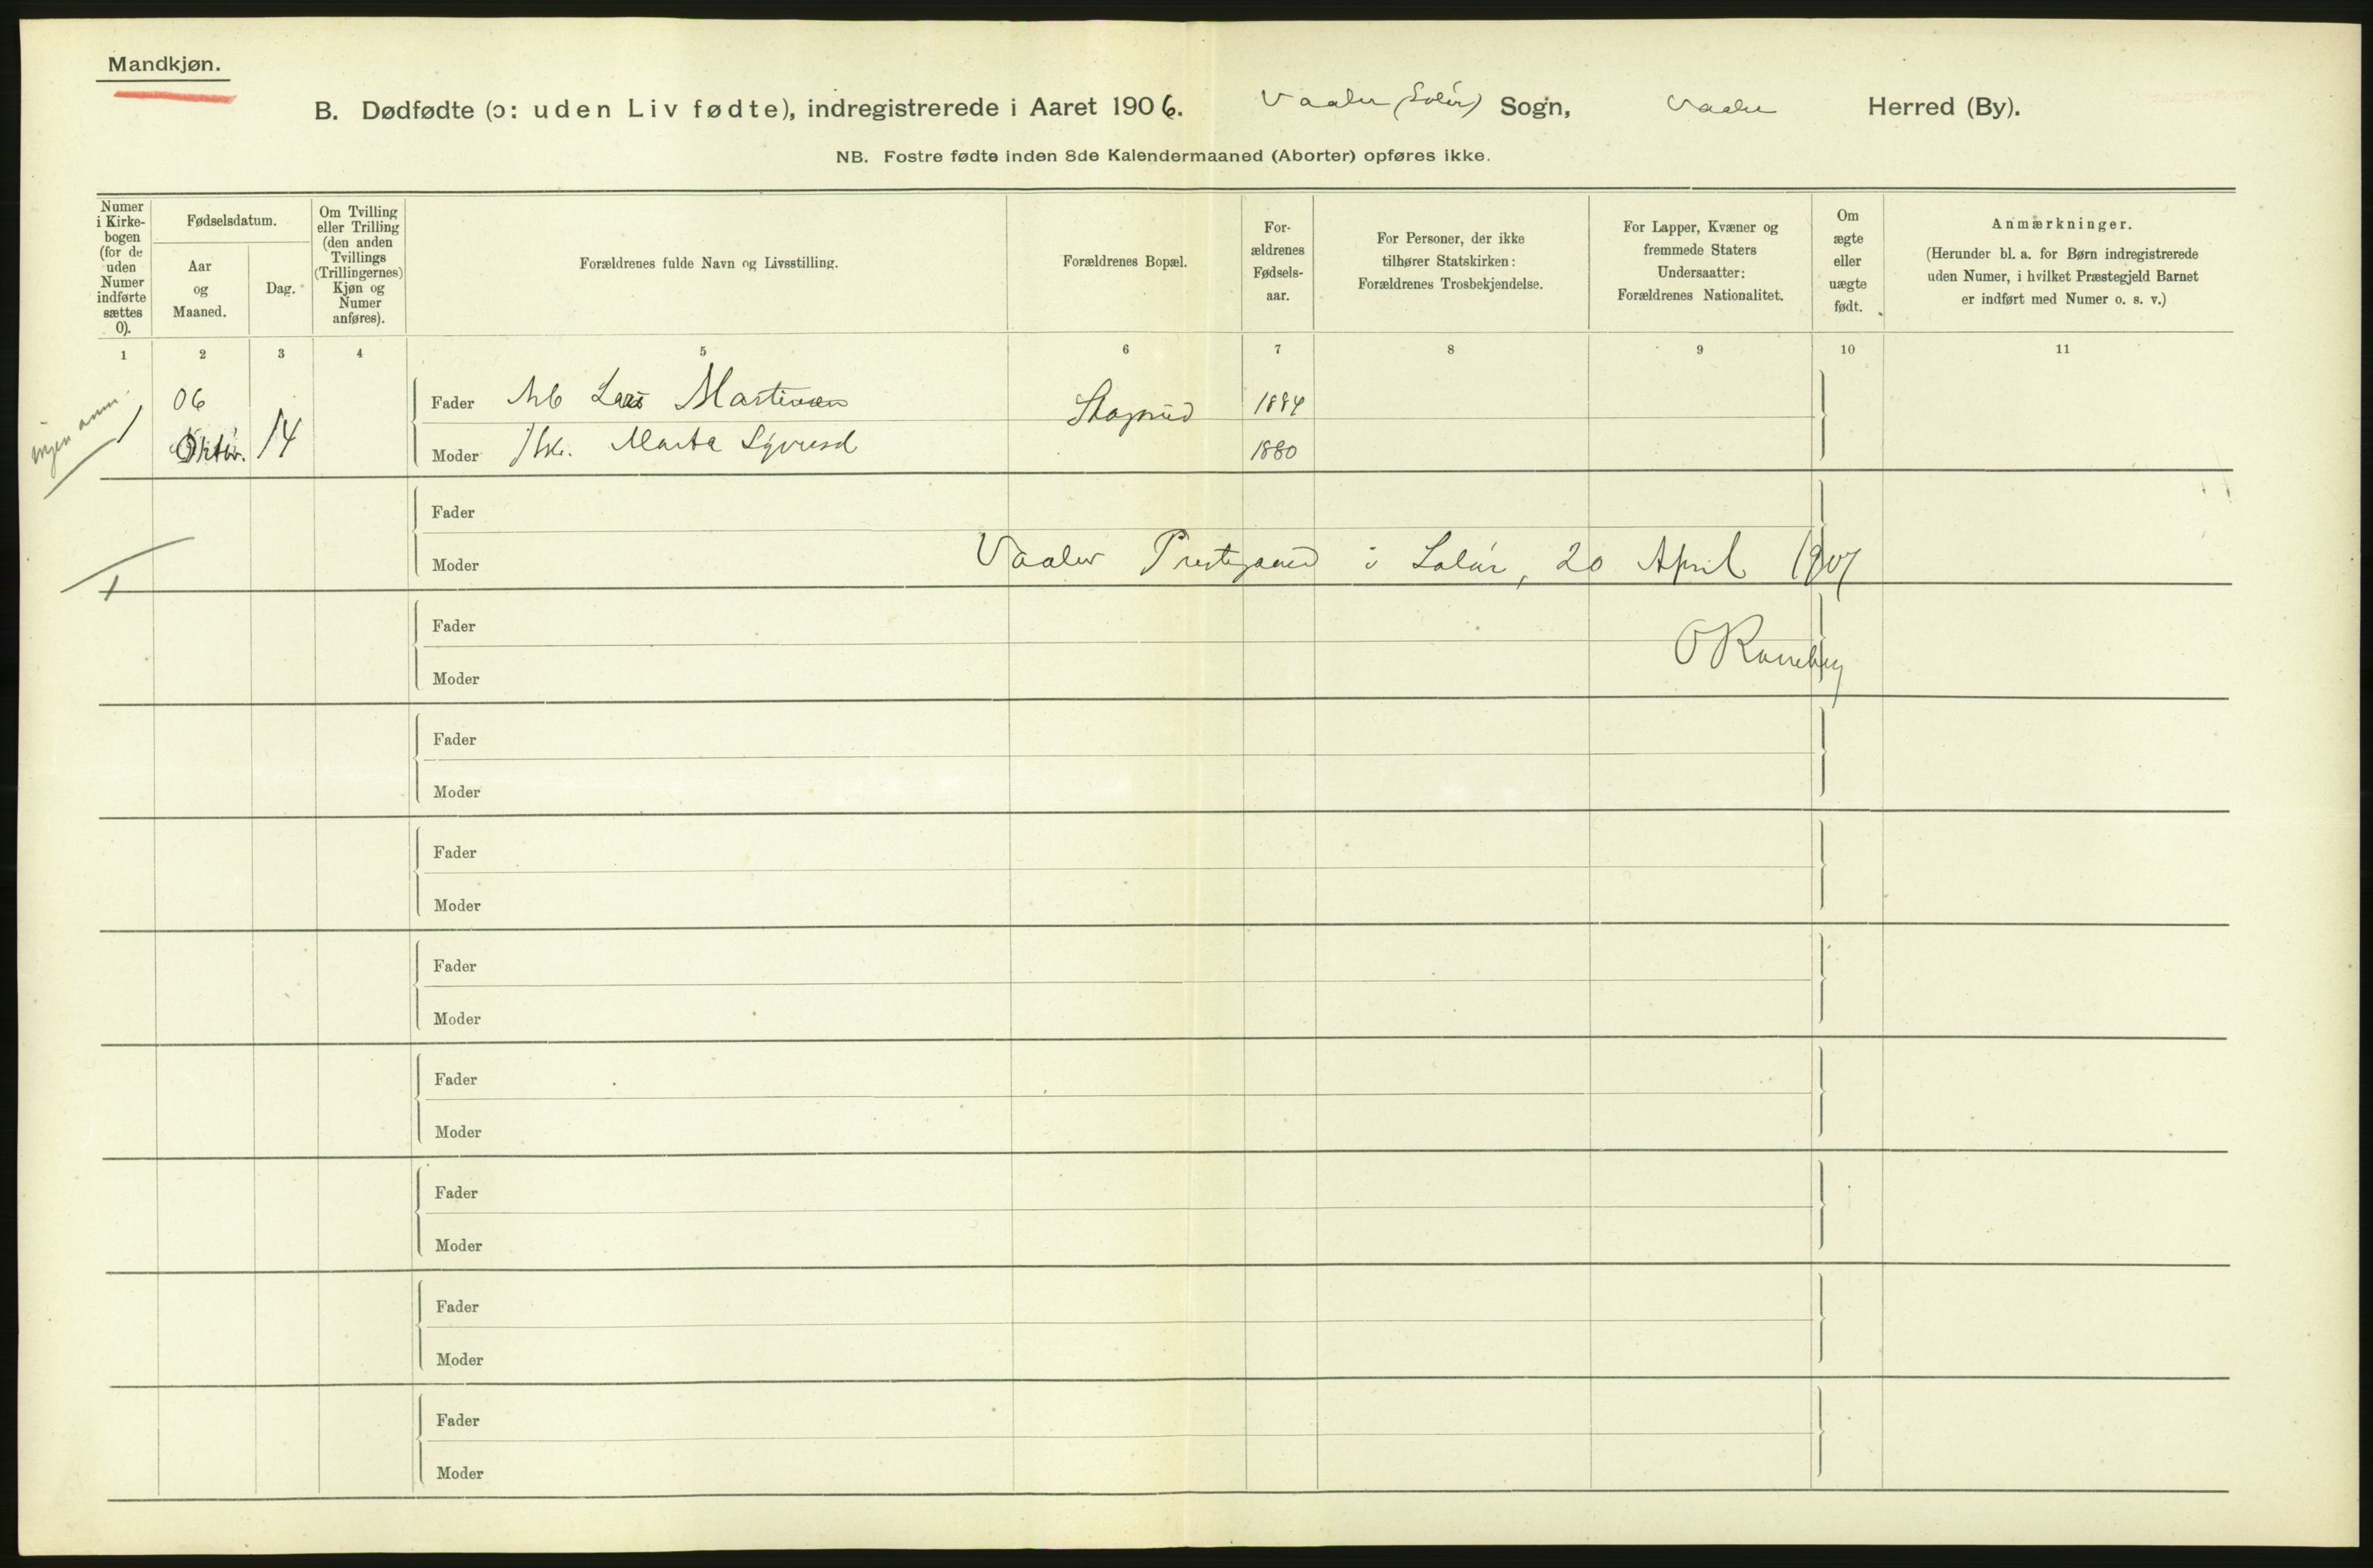 Mandkjøn.
B. Dødfødte (ɔ: uden Liv fødte), indregistrerede i Aaret 1906. Vaaler (Solør) Sogn, Vaaler Herred (By).
NB. Fostre fødte inden 8de Kalendermaaned (Aborter) opføres ikke.
Numer i Kirke-bogen (for de uden Numer indførte sættes 0).
Fødselsdatum.
Aar og Maaned.
Dag.
Om Tvilling eller Trilling (den anden Tvillings (Trillingernes) Kjøn og Numer anføres).
Forældrenes fulde Navn og Livsstilling.
Forældrenes Bopæl.
For-ældrenes Fødsels-aar.
For Personer, der ikke tilhører Statskirken: Forældrenes Trosbekjendelse.
For Lapper, Kvæner og fremmede Staters Undersaatter: Forældrenes Nationalitet.
Om ægte eller uægte født.
Anmærkninger.
(Herunder bl. a. for Børn indregistrerede uden Numer, i hvilket Præstegjeld Barnet er indført med Numer o. s. v.)
1 2 3 4 5 6 7 8 9 10 11
ingen anm.
1 06 Oktbr. 14
Fader Arb Lars Martinsen 1884
Moder Marta 1880
Fader
Moder
Vaaler Prestegaard i Solør, 20 April 1907
1
Fader
O
Moder
Fader
Moder
Fader
Moder
Fader
Moder
Fader
Moder
Fader
Moder
Fader
Moder
Fader
Moder